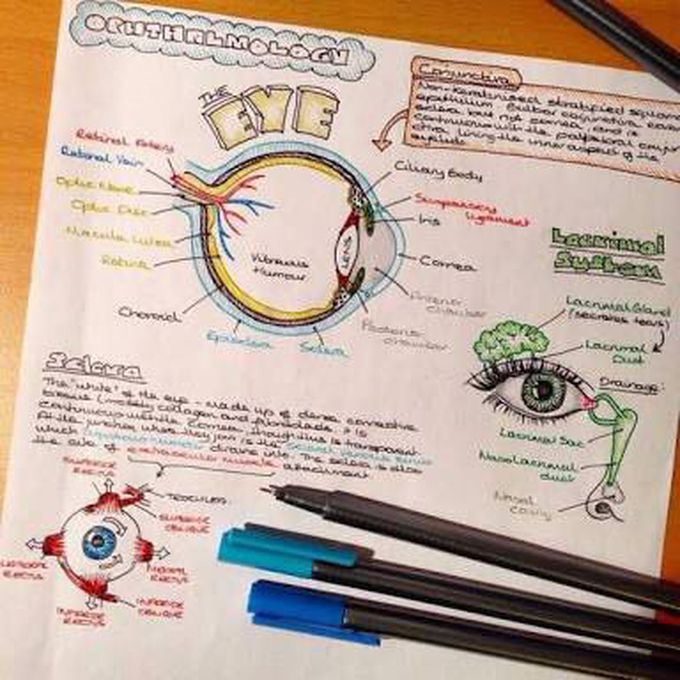 OPHTHALMOLOGY
THE EYE
Conjunctiva
Non-keratinised stratified squam
epithelium. Bulbar conjunctiva cov
sclera but not cornea, and is
continuous with the palpebral conjun
ctiva lining the inner aspect of the
eyelids.
Retinal Artery
Retinal Vein
Optic Nerve
Optic Disc
Macula Lutea
Retina
Choroid
Episclera
Sclera
Vitreous
Humour
LENS
Ciliary Body
Suspensory
ligament
Iris
Cornea
Anterior
chamber
Posterior
chamber
Lacrimal
System
Lacrimal Gland
(secretes tears)
Lacrimal
Duct
Drainage:
Lacrimal Sac
Nasolacrimal
duct
Nasal
cavity
Sclera
The "white" of the eye - made up of dense connective
tissue (mostly collagen and fibroblasts. It is
continuous with the Cornea, though this is transparent
At the junction where they join is the Scleral Venous Sinus
which aqueous humour drains into. The sclera is also
the site of extraocular muscle attachment
SUPERIOR
RECTUS
SUPERIOR
OBLIQUE
LATERAL
RECTUS
MEDIAL
RECTUS
INFERIOR
RECTUS
INFERIOR
OBLIQUE